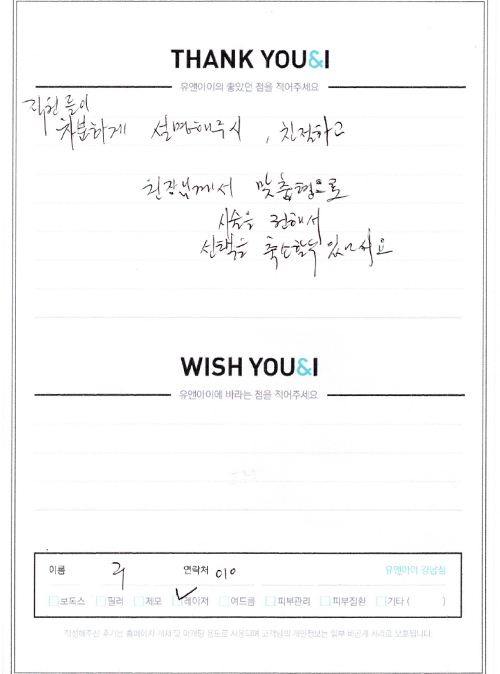 THANK YOU&I
유앤아이의 좋았던 점을 적어주세요
직원들이
차분하게 설명해주시, 친절하고
원장님께서 맞춤형으로
시술을 권해서
선택을 축소할수 있어서요
WISH YOU&I
유앤아이에 바라는 점을 적어주세요
이름 연락처 010 유앤아이 강남점
보톡스 필러 제모 레이저 여드름 피부관리 피부질환 기타 ( )
작성해주신 후기는 홈페이지 게재 및 마케팅 용도로 사용되며 고객님의 개인정보는 일부 비공개 처리로 보호됩니다